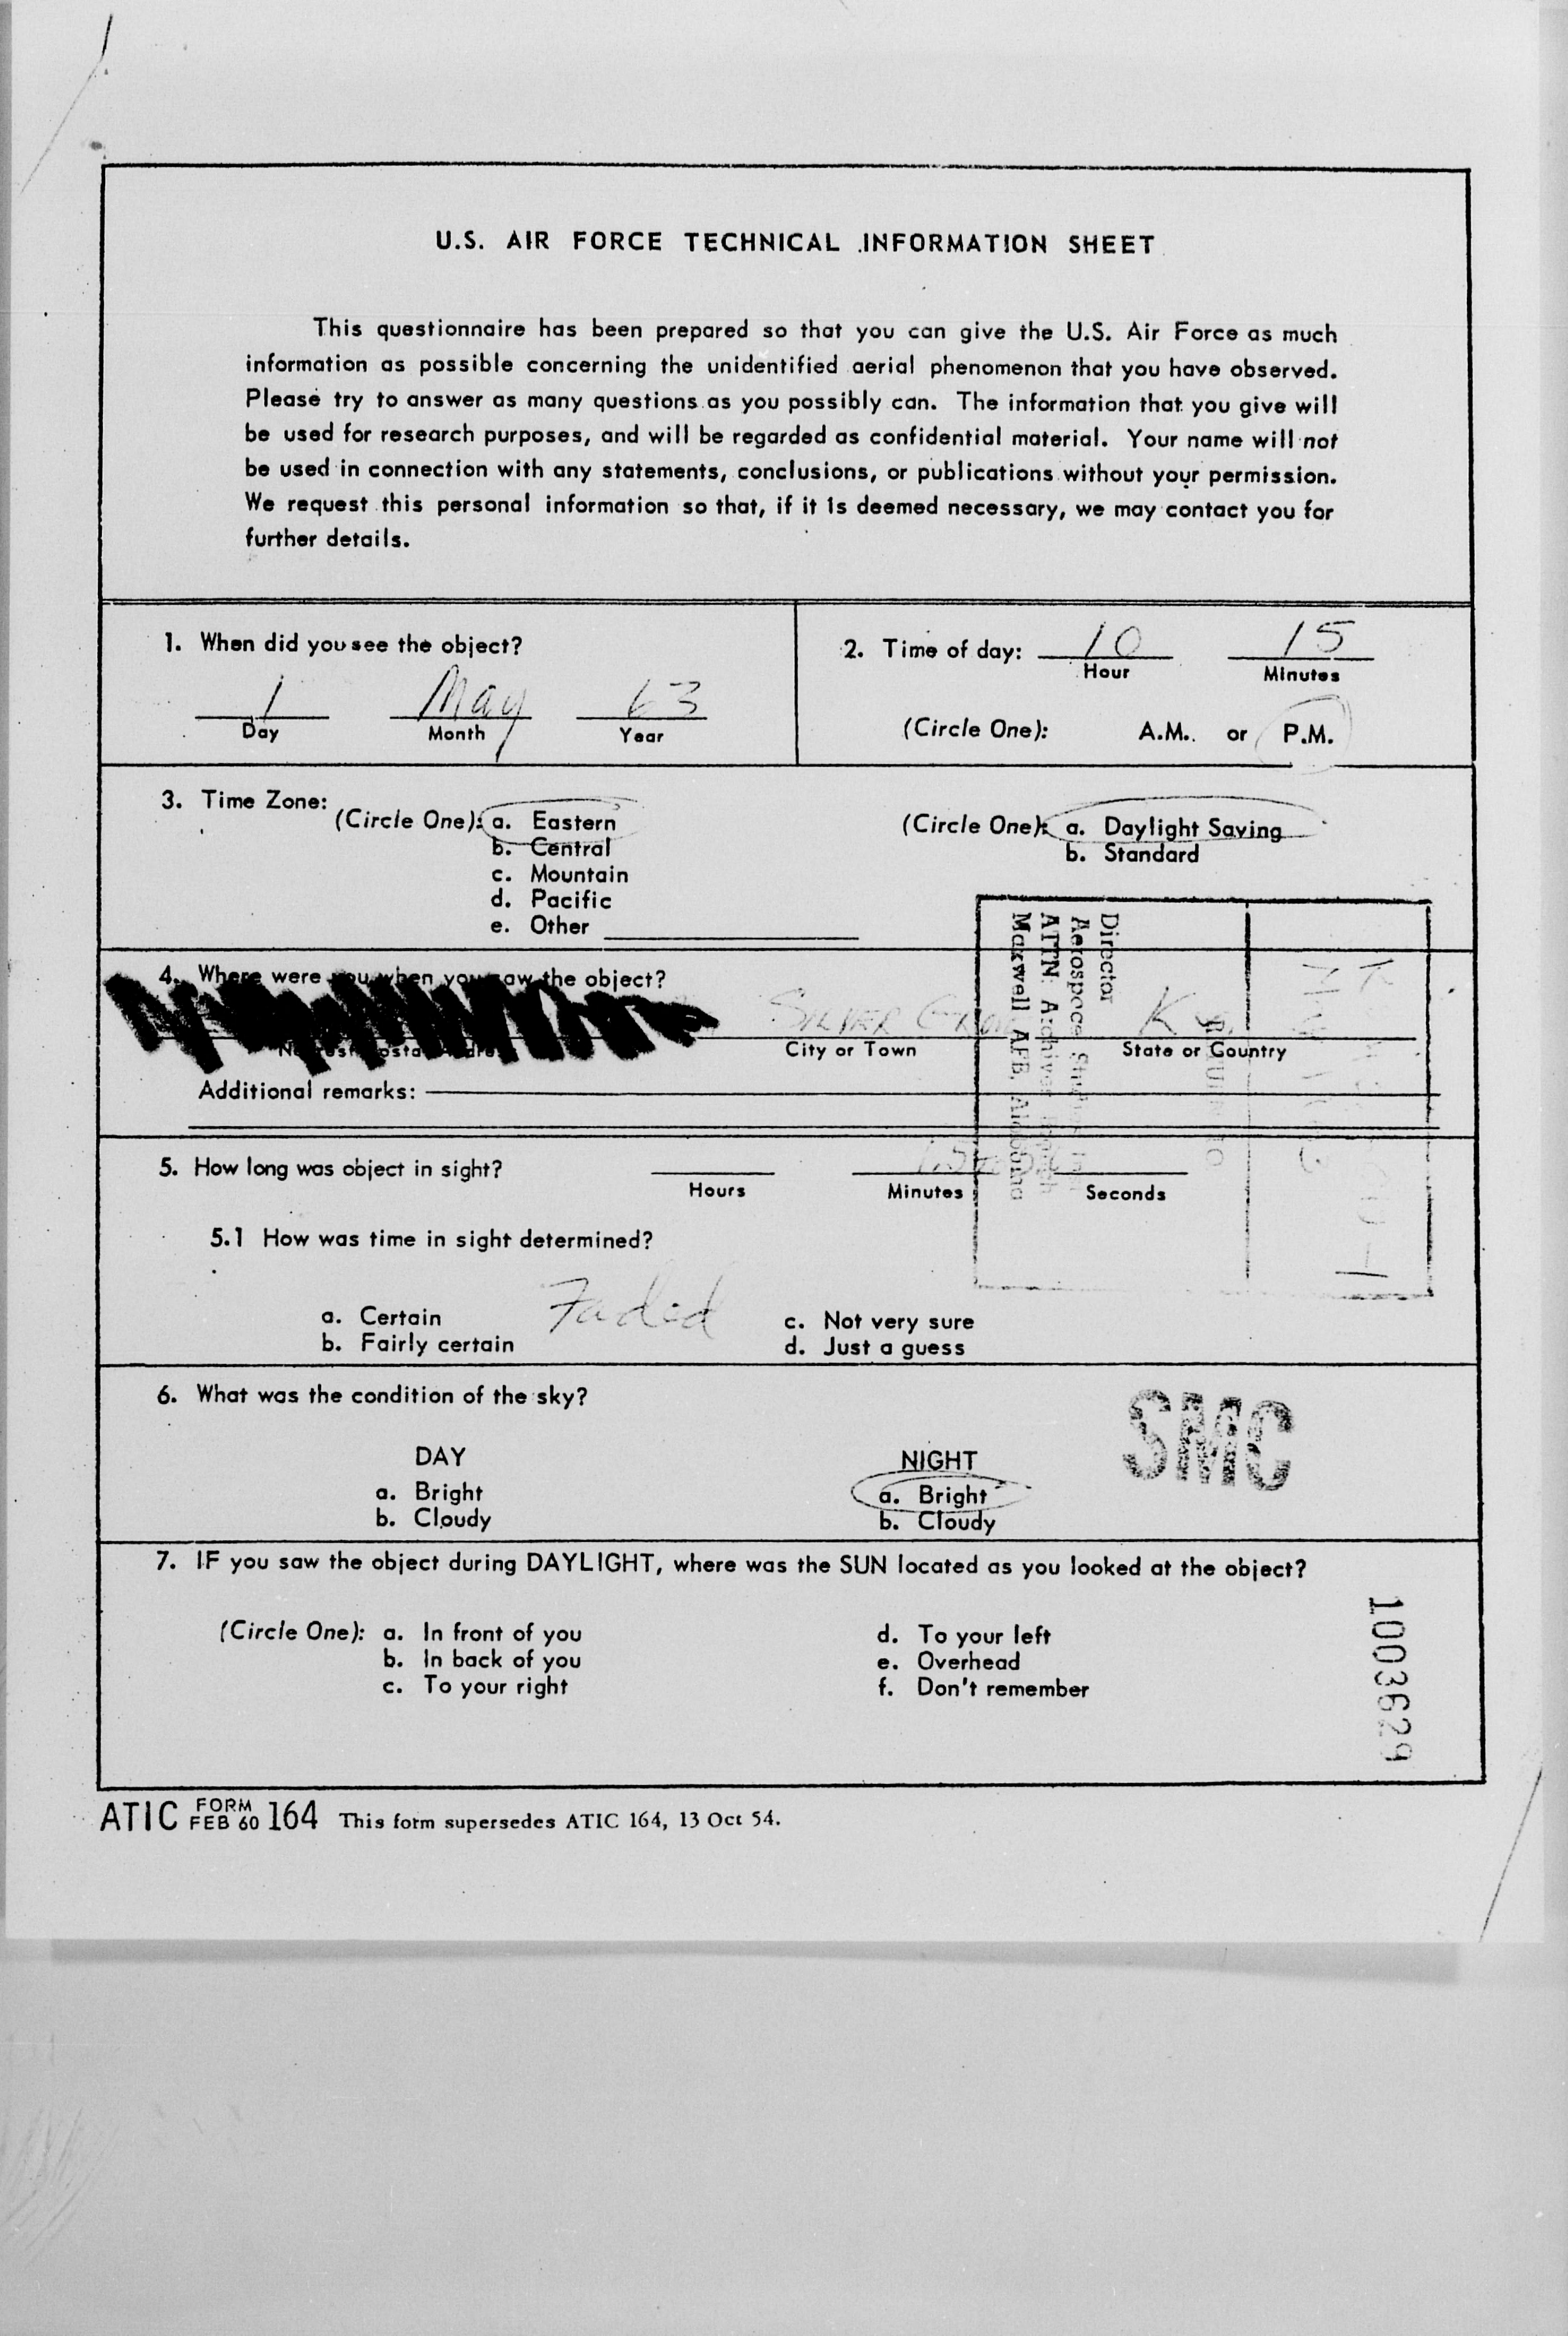 U.S. AIR FORCE TECHNICAL INFORMATION SHEET
This questionnaire has been prepared so that you can give the U.S. Air Force as much
information as possible concerning the unidentified aerial phenomenon that you have observed.
Please try to answer as many questions as you possibly can. The information that you give will
be used for research purposes, and will be regarded as confidential material. Your name will not
be used in connection with any statements, conclusions, or publications without your permission.
We request this personal information so that, if it is deemed necessary, we may contact you for
further details.
1. When did you see the object?
1 May 63
Day Month Year
2. Time of day: 10 15
Hour Minutes
(Circle One): A.M. or P.M.
3. Time Zone:
(Circle One): a. Eastern
b. Central
c. Mountain
d. Pacific
e. Other
(Circle One): a. Daylight Saving
b. Standard
4. Where were you when you saw the object?
SILVER GROVE Ky.
City or Town State or Country
Additional remarks:
Director
Aerospace Studies Inst
ATTN: Archives Branch
Maxwell AFB, Alabama
5. How long was object in sight?
Hours Minutes Seconds
5.1 How was time in sight determined?
Faded
a. Certain
b. Fairly certain
c. Not very sure
d. Just a guess
6. What was the condition of the sky?
SMC
DAY
a. Bright
b. Cloudy
NIGHT
a. Bright
b. Cloudy
7. IF you saw the object during DAYLIGHT, where was the SUN located as you looked at the object?
(Circle One): a. In front of you
b. In back of you
c. To your right
d. To your left
e. Overhead
f. Don't remember
1003629
ATIC FORM FEB 60 164 This form supersedes ATIC 164, 13 Oct 54.